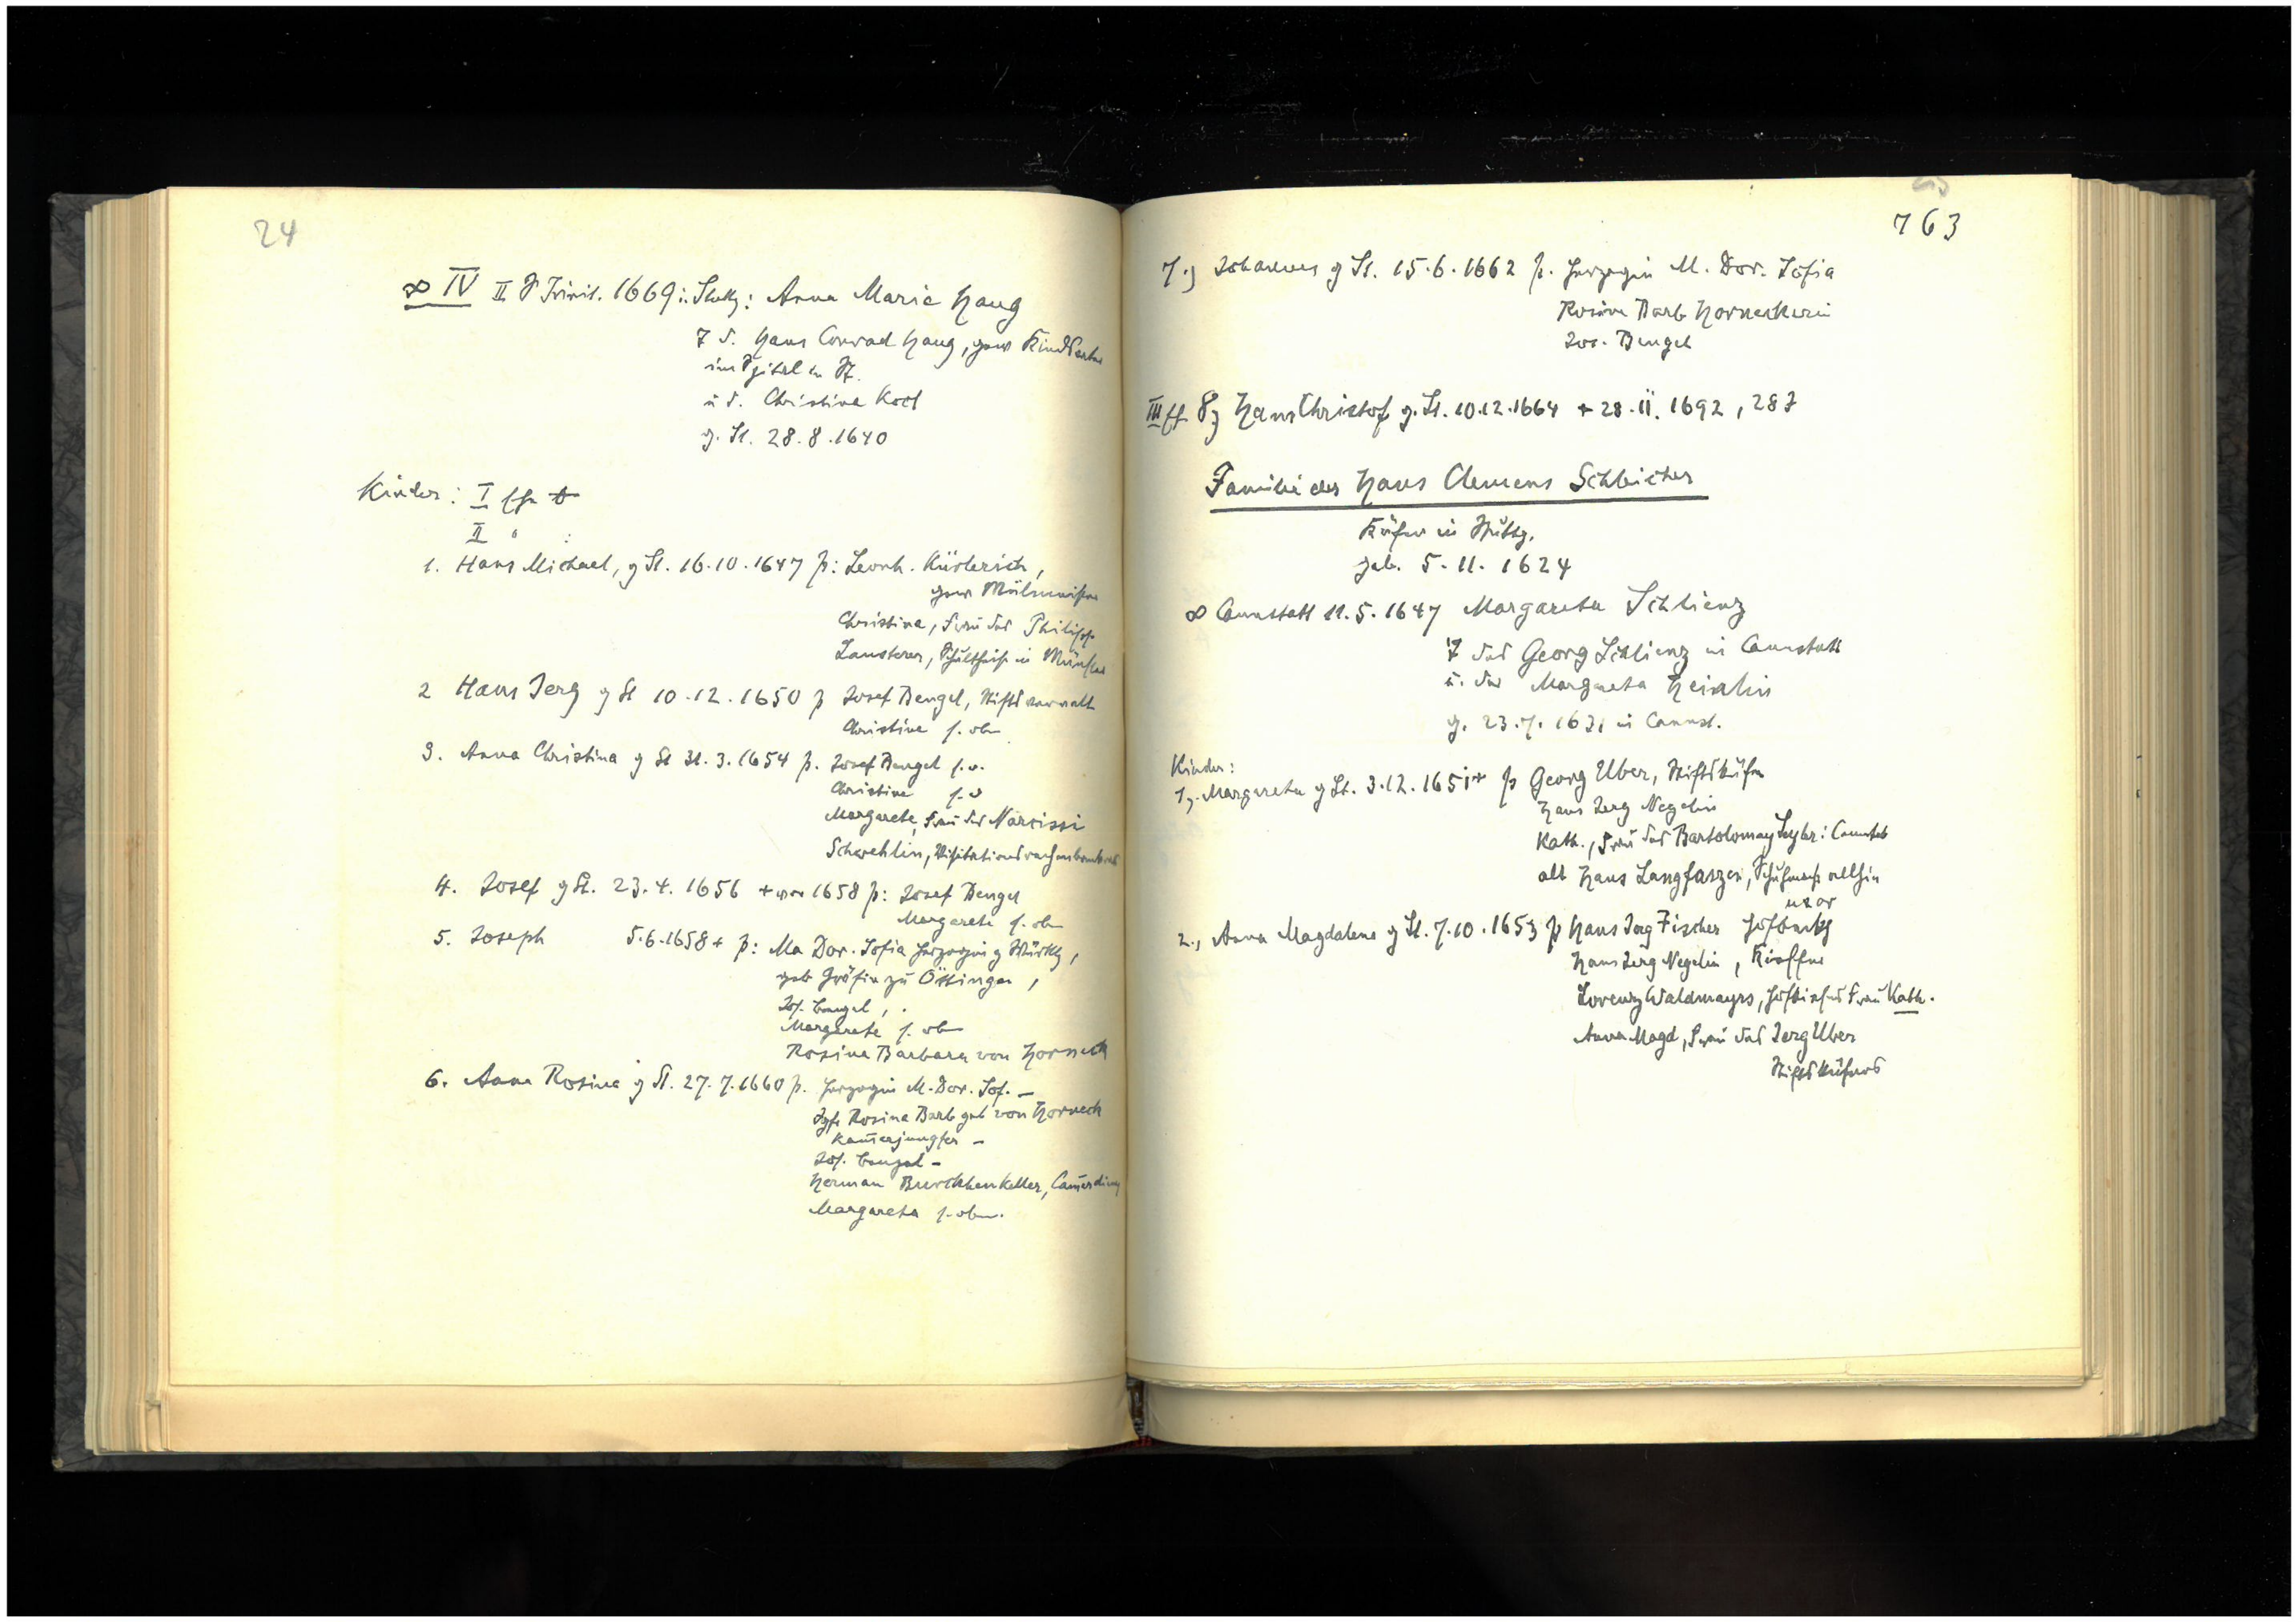 24
∞ IV II P Trinit. 1669 i. Stuttg: Anna Maria Haug
T d. Hans Conrad Haug, gew
im Spital in St.
u d. Christina Kod
g. St. 28.8.1640
Kinder: I
II " :
1. Hans Michael, g St. 16.10.1647 p: Leonh. Küsterich,
gew
Christina, Frau des Philipp
Lausterer, Schultheiß in Münster
2 Hans Jerg g St 10.12.1650 p Josef Bengel, Stiftsverwalt
Christina s. oben
3. Anna Christina g St 31.3.1654 p. Josef Bengel s. o.
Christina s. o
Margarete, Frau des Narcissi
Schwehlin,
4. Josef g St. 23.4.1656 + vor 1658 p: Josef Bengel
Margarete s. oben
5. Joseph 5.6.1658 + p: Ma Dor. Sofia Herzogin z Württbg,
geb Gräfin zu Öttingen,
Jos. Bengel,
Margarete s. oben
Rosina Barbara von Horneck
6. Anna Rosina g St. 27.7.1660 p. Herzogin M. Dor. Sof. –
Jgfr Rosina Barb geb von Horneck
Kam̄erjungfer –
Jos. Bengel –
Herman Burckhenkeller, Cam̄erdiener
Margareta s. oben.
763
7.) Johannes g St. 15.6.1662 p. Herzogin M. Dor. Sofia
Rosina Barb Horneckerin
Jos. Bengel
III 8.) Hans Christof g. St. 10.12.1664 + 28.11.1692, 28 J
Familie des Hans Clemens Schleicher
Küfer in Stuttg.
geb. 5.11.1624
∞ Cannstatt 11.5.1647 Margareta Schlienz
T des Georg Schlienz in Cannstatt
u. der Margareta
g. 23.7.1631 in Cannst.
Kinder:
1.) Margareta g St. 3.12.1651 + p Georg Uber, Stiftsküfer
Hans Jerg Negelin
Kath., Frau des Bartolomay
alt Hans
2., Anna Magdalena g St. 7.10.1653 p Hans Jerg Fischer
uxor
Hans Jerg Negelin, Kieffer
Lorenz Waldmayrs, Frau Kath.
Anna Magd, Frau des Jerg Uber
Stiftsküfers